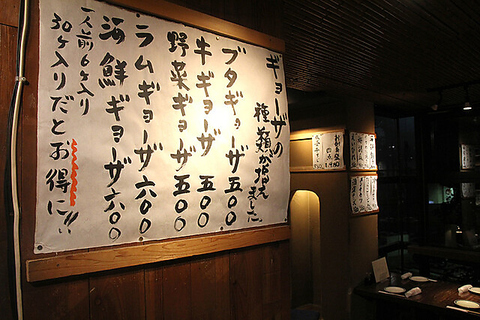 ギョーザの
種類が増え
ました。
ブタギョーザ 五〇〇
牛ギョーザ 五〇〇
野菜ギョーザ 五〇〇
ラムギョーザ 六〇〇
海鮮ギョーザ 六〇〇
一人前6ケ入り
30ケ入りだとお得に!!